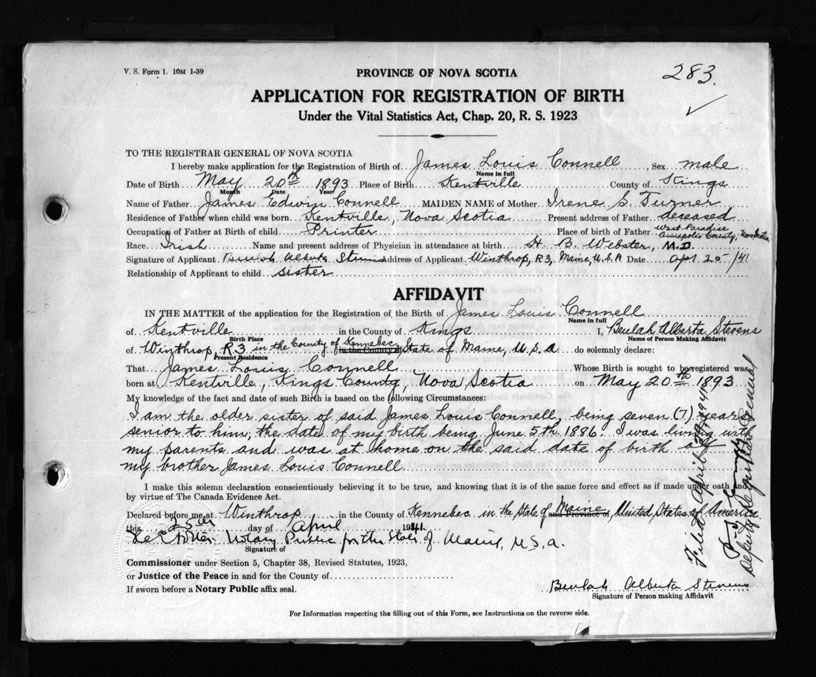 V. S. Form 1. 10M 1-39
283.
PROVINCE OF NOVA SCOTIA
APPLICATION FOR REGISTRATION OF BIRTH
Under the Vital Statistics Act, Chap. 20, R. S. 1923
TO THE REGISTRAR GENERAL OF NOVA SCOTIA
I hereby make application for the Registration of Birth of James Louis Connell, Sex male
Name in full
Date of Birth May 20th 1893 Place of Birth Kentville County of Kings
Month Date Year
Name of Father James Edwin Connell MAIDEN NAME of Mother Irene S. Turner
Residence of Father when child was born Kentville, Nova Scotia Present address of Father deceased
Occupation of Father at Birth of child Printer Place of birth of Father West Paradise Annapolis County, Nova Scotia
Race Irish Name and present address of Physician in attendance at birth H. B. Webster, M.D.
Signature of Applicant Beulah Alberta Stevens Address of Applicant Winthrop, R3, Maine, U.S.A Date Apr 25/41
Relationship of Applicant to child sister
AFFIDAVIT
IN THE MATTER of the application for the Registration of the Birth of James Louis Connell
Name in full
of Kentville in the County of Kings I, Beulah Alberta Stevens
Birth Place Name of Person Making Affidavit
of Winthrop, R3 in the County of Kennebec in the County of State of Maine, U.S.A do solemnly declare:
Present Residence
That James Louis Connell Whose Birth is sought to be registered was
born at Kentville, Kings County, Nova Scotia on May 20th 1893
My knowledge of the fact and date of such Birth is based on the following Circumstances:
I am the older sister of said James Louis Connell, being seven (7) years
senior to him, the date of my birth being June 5th 1886. I was living with
my parents and was at home on the said date of birth of
my brother James Louis Connell
I make this solemn declaration conscientiously believing it to be true, and knowing that it is of the same force and effect as if made under oath and
by virtue of The Canada Evidence Act.
Declared before me at Winthrop in the County of Kennebec in the State of and Province of Maine, United States of America
this 25th day of April 1941
Notary Public for the State of Maine, U.S.a.
Signature of
Commissioner under Section 5, Chapter 38, Revised Statutes, 1923,
or Justice of the Peace in and for the County of
If sworn before a Notary Public affix seal.
Beulah Alberta Stevens
Signature of Person making Affidavit
For Information respecting the filling out of this Form, see Instructions on the reverse side.
Filed April 1941
Deputy Registrar General